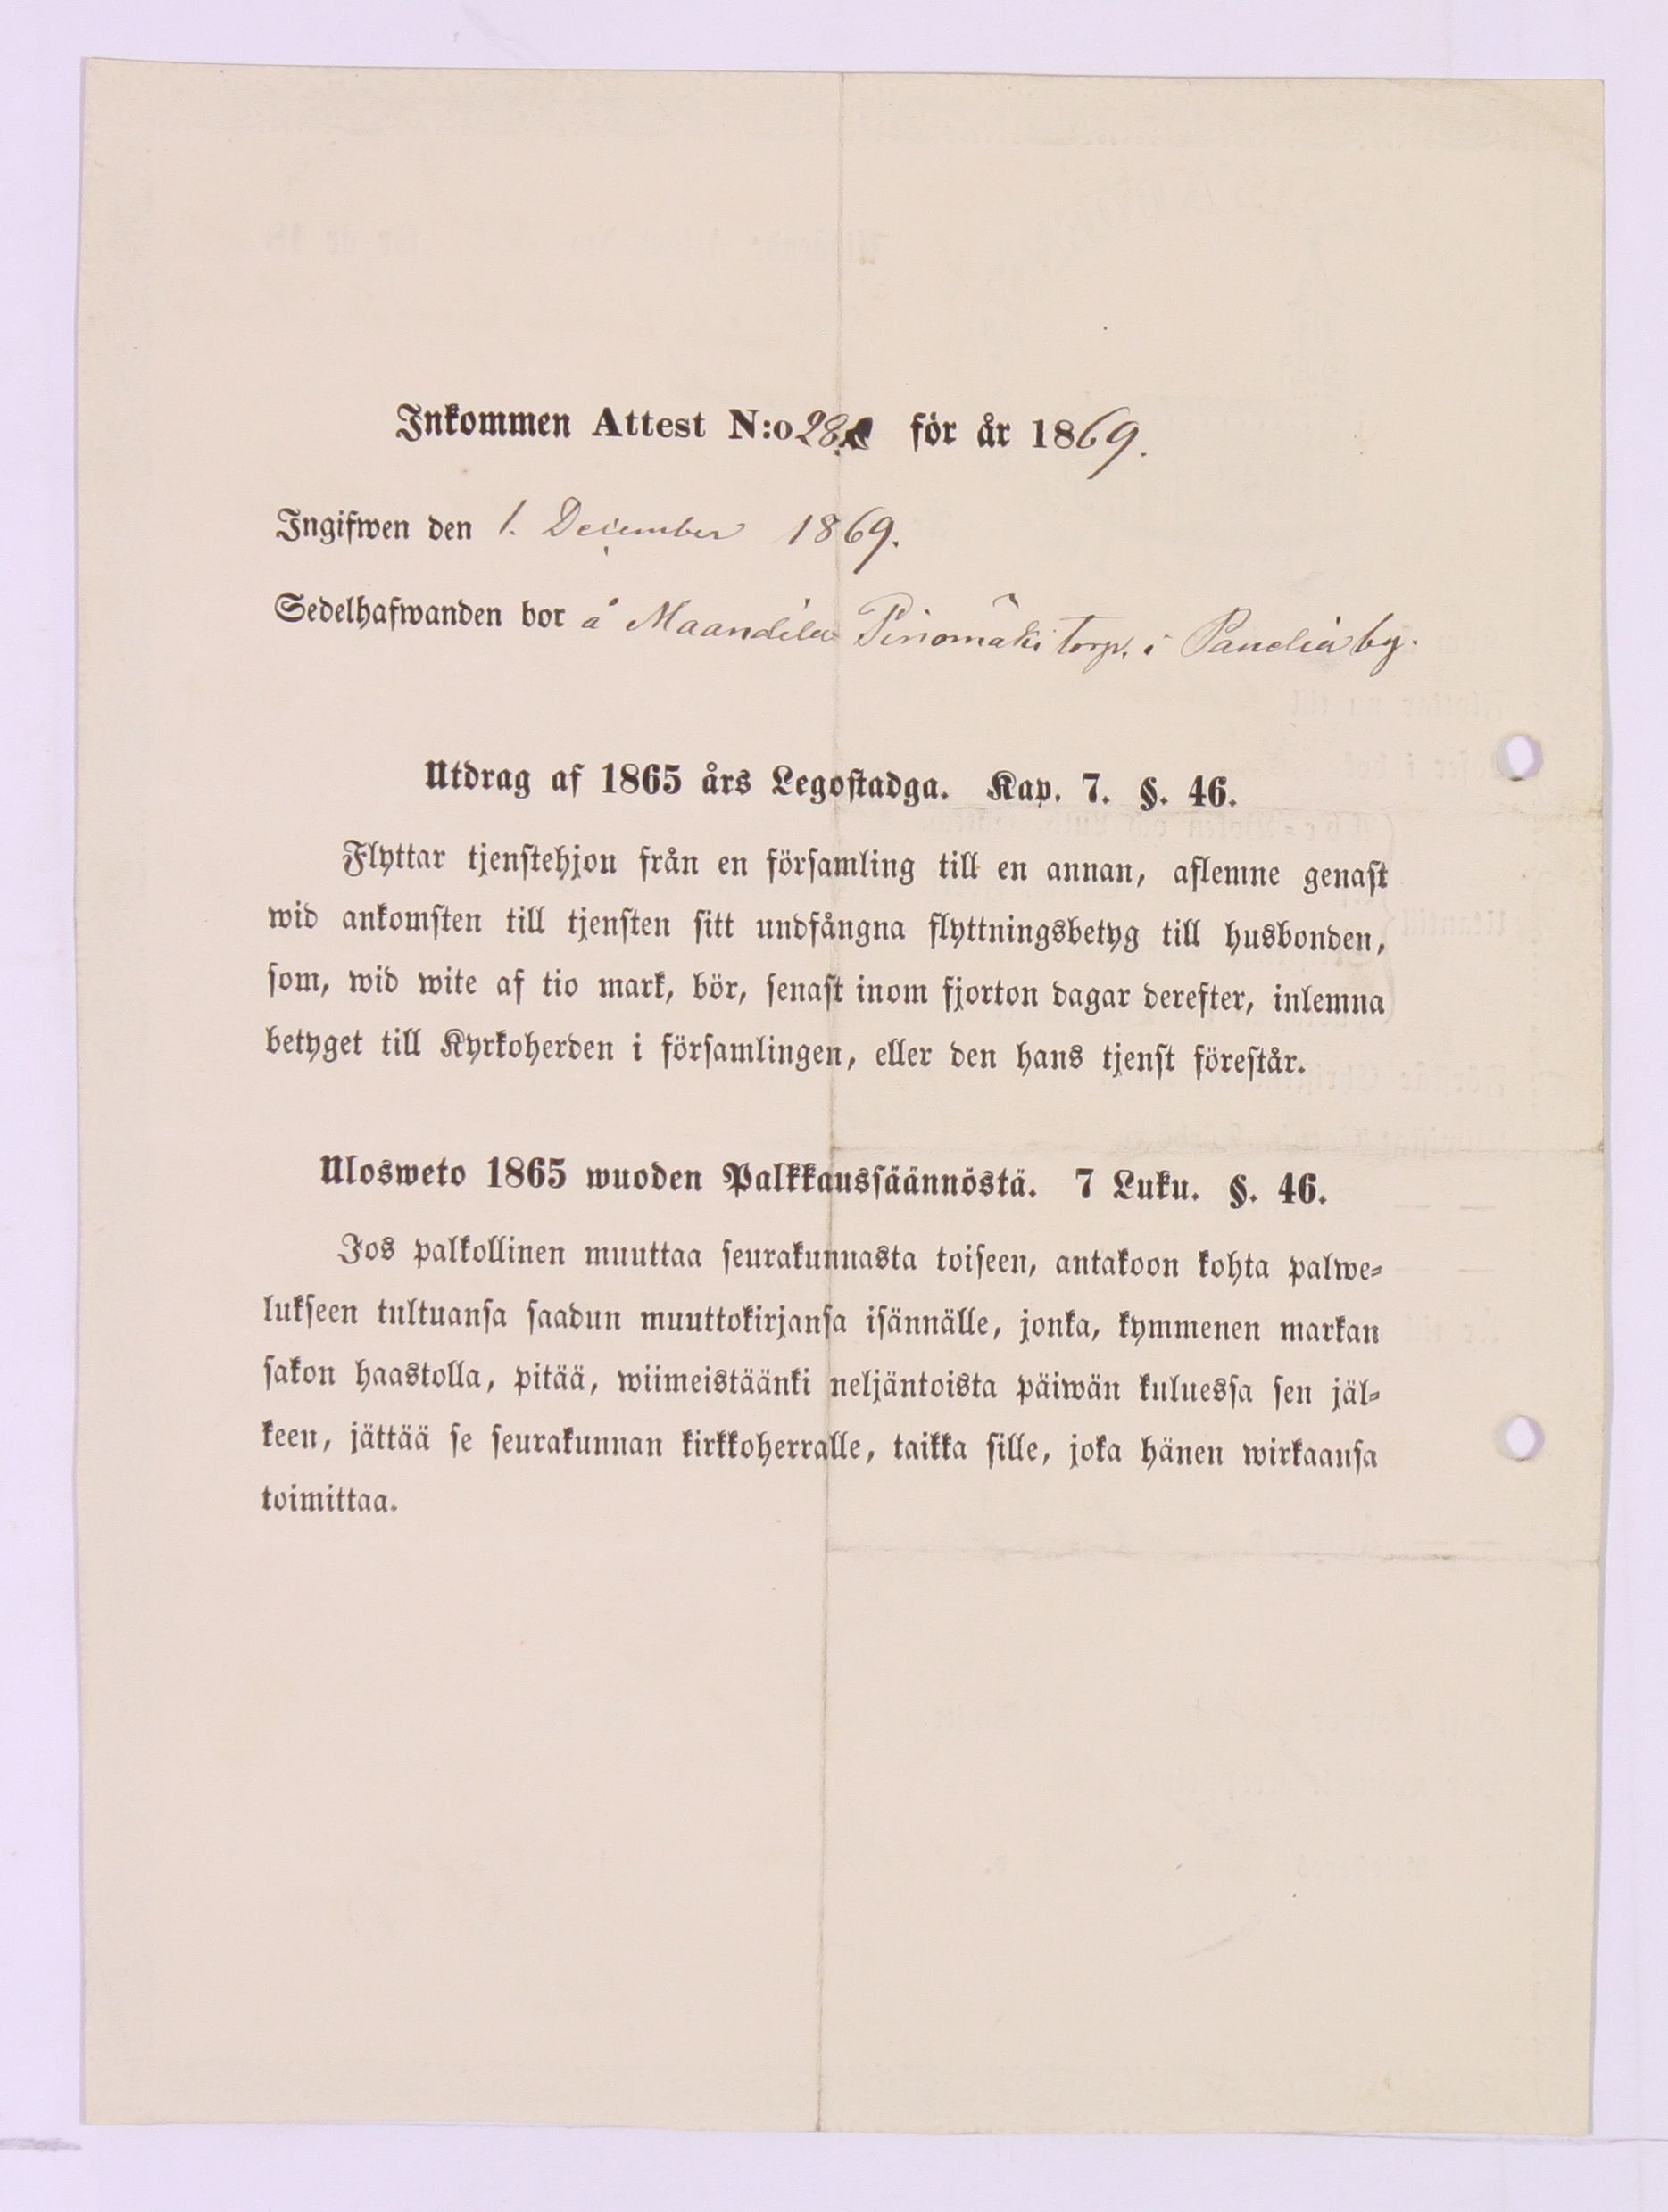 Inkommen Attest N:o 28. för år 1869.
Ingifwen den 1. December 1869.
Sedelhafwanden bor å Maandila Pinomäki torp. i Panelia by.
Utdrag af 1865 års Legostadga. Kap. 7. §. 46.
Flyttar tjenstehjon från en församling till en annan, aflemne genast
wid ankomsten till tjensten sitt undfångna flyttningsbetyg till husbonden,
som, wid wite af tio mark, bör, senast inom fjorton dagar derefter, inlemna
betyget till Kyrkoherden i församlingen, eller den hans tjenst förestår.
Ulosweto 1865 wuoden Palkkaussäännöstä. 7 Luku. §. 46.
Jos palkollinen muuttaa seurakunnasta toiseen, antakoon kohta palwe-
lukseen tultuansa saadun muuttokirjansa isännälle, jonka, kymmenen markan
sakon haastolla, pitää, wiimeistäänki neljäntoista päiwän kuluessa sen jäl-
keen, jättää se seurakunnan kirkkoherralle, taikka sille, joka hänen wirkaansa
toimittaa.